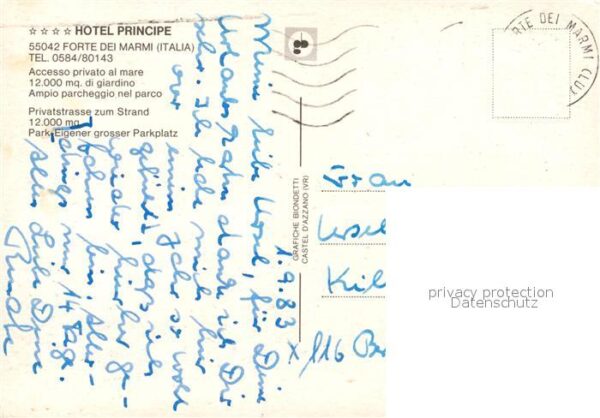 ★★★★ HOTEL PRINCIPE
55042 FORTE DEI MARMI (ITALIA)
TEL. 0584/80143
Accesso privato al mare
12.000 mq. di giardino
Ampio parcheggio nel parco
Privatstrasse zum Strand
12.000 mq
Park-Eigener grosser Parkplatz
GRAFICHE BIONDETTI
CASTEL D'AZZANO (VR)
RTE DEI MARMI (LU)
1.9.83
Meine liebe Ursel, für Deine
danke ich Dir
sehr. Ich habe mich hier
vor einem Jahr so wohl
gefühlt, dass ich
wieder hierher ge-
fahren bin, aller-
dings nur 14 Tage.
Alles Liebe Deine
Renate
Frau
Ursel
Kil
116 Be
privacy protection
Datenschutz